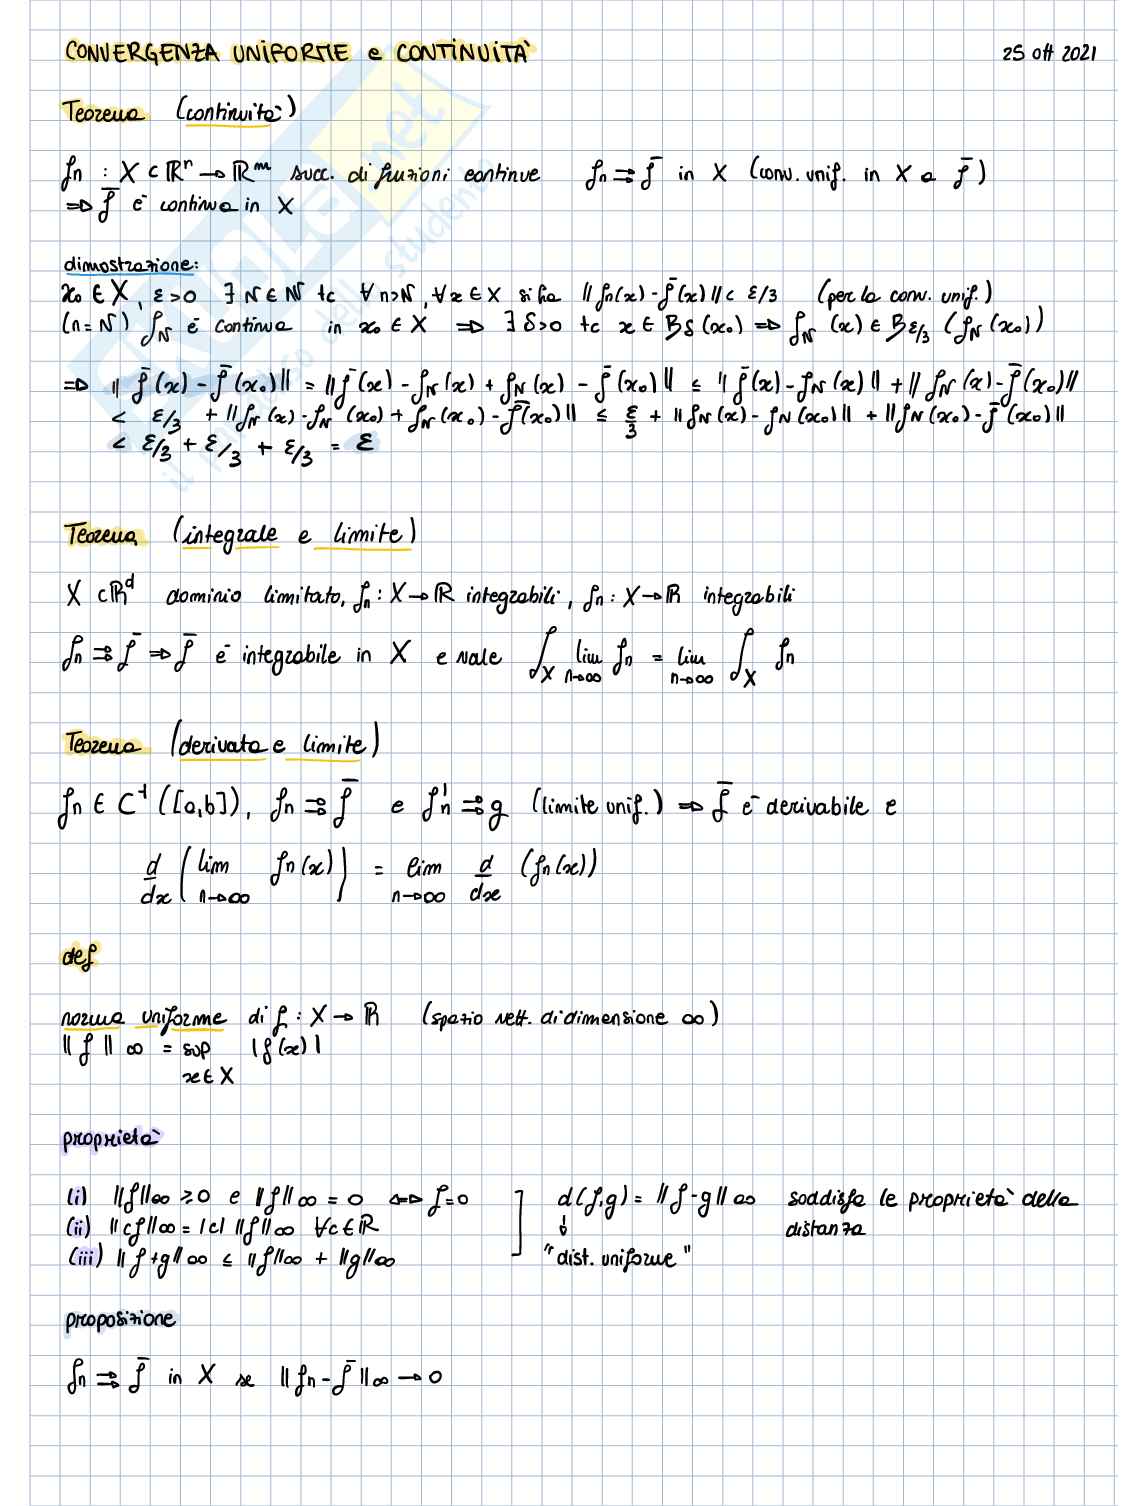 CONVERGENZA UNIFORME e CONTINUITÀ 25 ott 2021
Teorema (continuità)
fn : X ⊂ ℝⁿ → ℝᵐ succ. di funzioni continue fn ⇉ f̄ in X (conv. unif. in X a f̄)
⇒ f̄ è continua in X
dimostrazione:
x₀ ∈ X, ε>0 ∃ N ∈ ℕ tc ∀n>N, ∀x ∈ X si ha ‖fn(x) - f̄(x)‖ < ε/3 (per la conv. unif.)
(n=N) f_N è continua in x₀ ∈ X ⇒ ∃ δ>0 tc x ∈ Bδ(x₀) ⇒ f_N(x) ∈ B_ε/3 (f_N(x₀))
⇒ ‖f̄(x) - f̄(x₀)‖ = ‖f̄(x) - f_N(x) + f_N(x) - f̄(x₀)‖ ≤ ‖f̄(x) - f_N(x)‖ + ‖f_N(x) - f̄(x₀)‖
< ε/3 + ‖f_N(x) - f_N(x₀) + f_N(x₀) - f̄(x₀)‖ ≤ ε/3 + ‖f_N(x) - f_N(x₀)‖ + ‖f_N(x₀) - f̄(x₀)‖
< ε/3 + ε/3 + ε/3 = ε
Teorema (integrale e limite)
X ⊂ ℝᵈ dominio limitato, fn : X → ℝ integrabili, fn : X → ℝ integrabili
fn ⇉ f̄ ⇒ f̄ è integrabile in X e vale ∫_X lim_{n→∞} fn = lim_{n→∞} ∫_X fn
Teorema (derivata e limite)
fn ∈ C¹([a,b]), fn ⇉ f̄ e fn' ⇉ g (limite unif.) ⇒ f̄ è derivabile e
d/dx (lim_{n→∞} fn(x)) = lim_{n→∞} d/dx (fn(x))
def
norma uniforme di f : X → ℝ (spazio vett. di dimensione ∞)
‖f‖∞ = sup_{x∈X} |f(x)|
proprietà
(i) ‖f‖∞ ≥ 0 e ‖f‖∞ = 0 ⇔ f=0 d(f,g) = ‖f-g‖∞ soddisfa le proprietà della
(ii) ‖cf‖∞ = |c| ‖f‖∞ ∀c∈ℝ ↓ distanza
(iii) ‖f+g‖∞ ≤ ‖f‖∞ + ‖g‖∞ "dist. uniforme"
proposizione
fn ⇉ f̄ in X se ‖fn - f̄‖∞ → 0